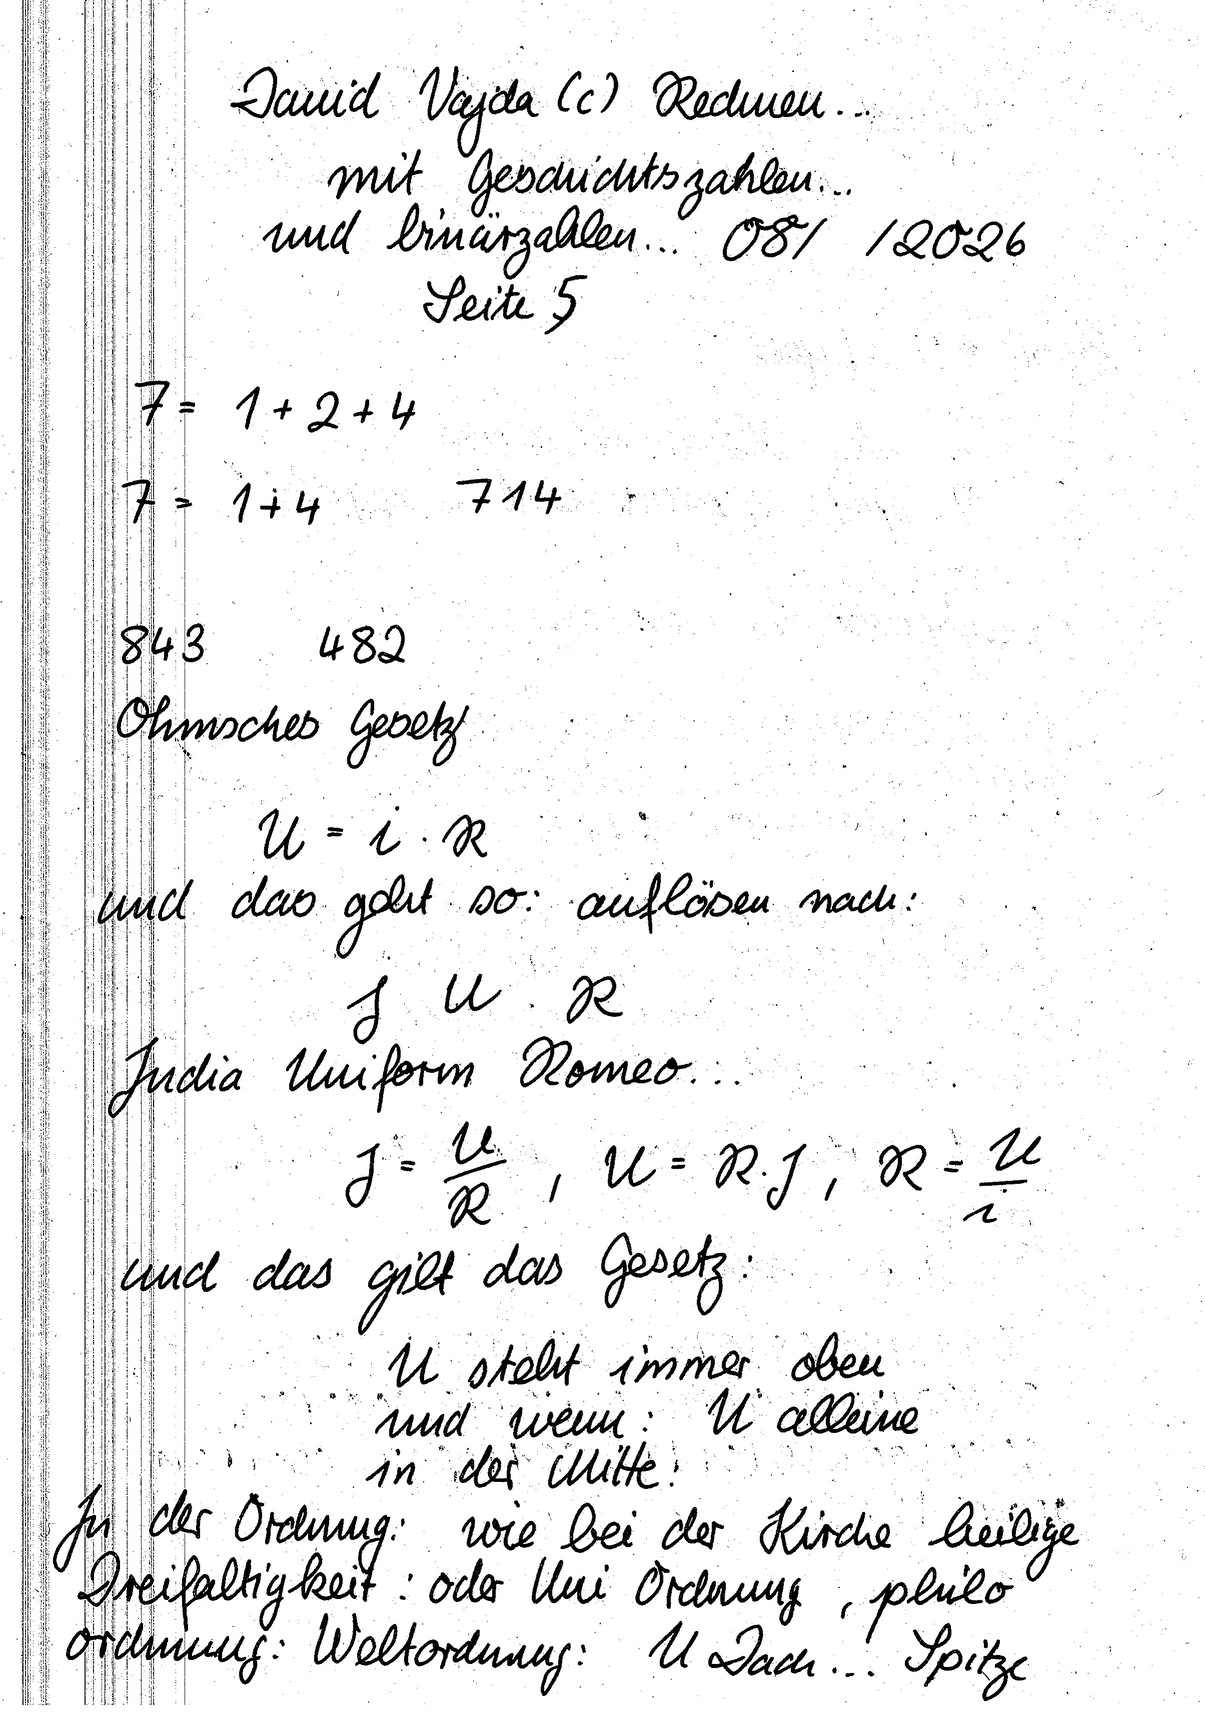 David Vajda (c) Rechnen...
mit Geschichtszahlen...
und binärzahlen... 08/ /2026
Seite 5
7 = 1 + 2 + 4
7 = 1 + 4 714
843 482
Ohmsches Gesetz
U = i · R
und das geht so: auflösen nach:
I U R
India Uniform Romeo...
I = U/R , U = R · I , R = U/i
und das gilt das Gesetz:
U steht immer oben
und wenn: U alleine
in der Mitte:
In der Ordnung: wie bei der Kirche heilige
Dreifaltigkeit: oder Uni Ordnung, philo
ordnung: Weltordnung: U Dach... Spitze